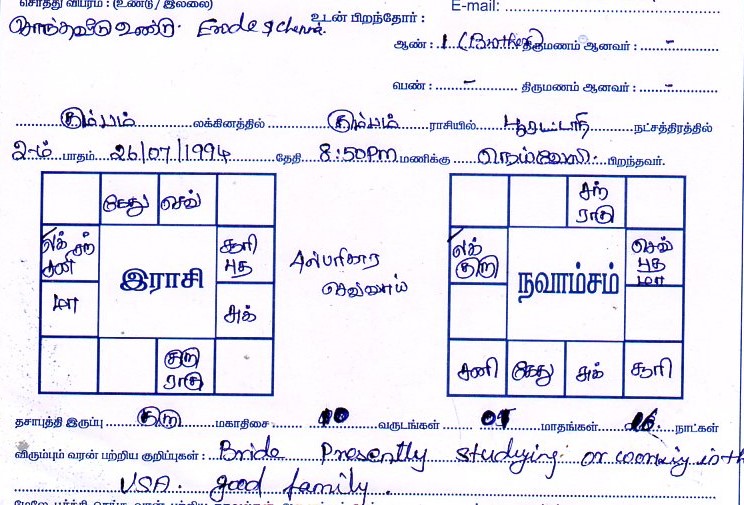 சொத்து விபரம் : (உண்டு / இல்லை)
E-mail:
சொந்தவீடு உண்டு. Erode & Chennai
உடன் பிறந்தோர் :
ஆண் : 1 (Brother) திருமணம் ஆனவர் : -
பெண் : - திருமணம் ஆனவர் : -
கும்பம் லக்கினத்தில் கும்பம் ராசியில் பூரட்டாதி நட்சத்திரத்தில்
2-ம் பாதம் 26/07/1994 தேதி 8:50pm மணிக்கு நெய்வேலி. பிறந்தவர்.
கேது செவ்
லக் சந் சனி
சூரி புத
இராசி
மா
சுக்
குரு ராகு
சந் ராகு
லக் குரு
செவ் புத மா
நவாம்சம்
சனி கேது சுக் சூரி
செவ்வாய்
தசாபுத்தி இருப்பு குரு மகாதிசை 10 வருடங்கள் மாதங்கள் 16 நாட்கள்
விரும்பும் வரன் பற்றிய குறிப்புகள் : Bride Presently studying or working in th
USA. good family.